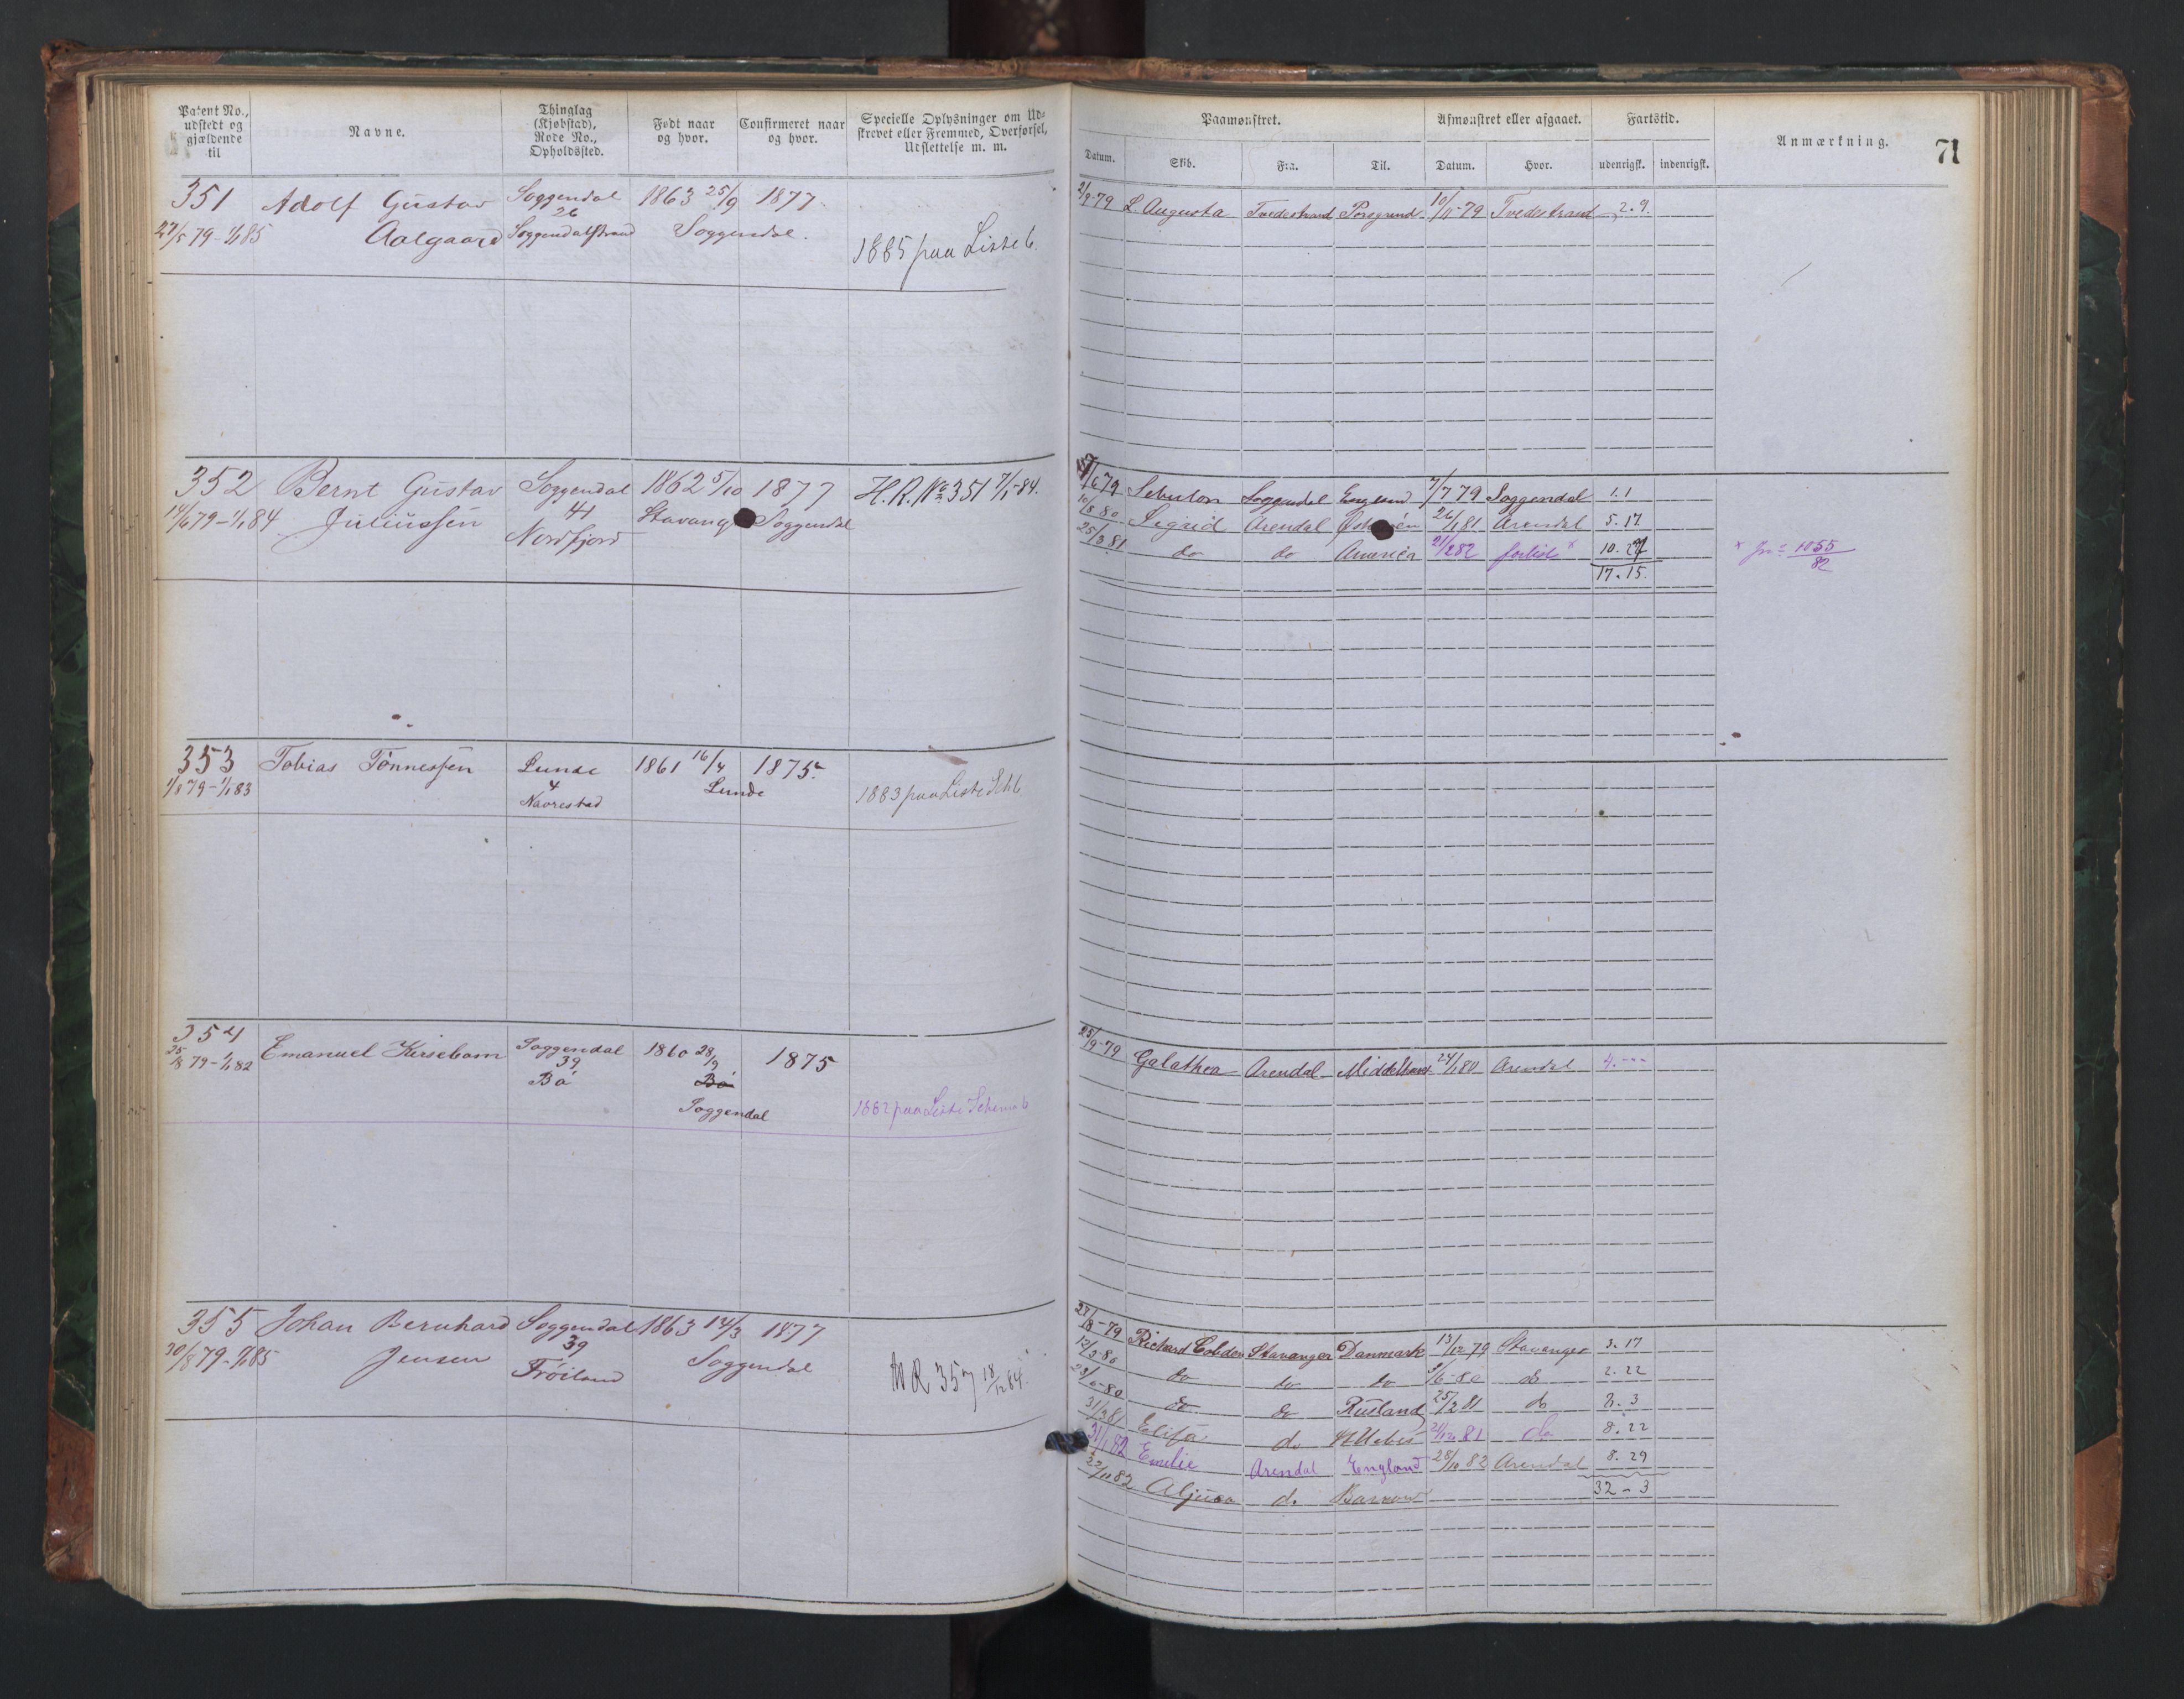 Patent No., udstedt og gjældende til
Navne.
Thinglag (Kjøbstad), Rode No., Opholdssted.
Født naar og hvor.
Confirmeret naar og hvor.
Specielle Oplysninger om Udskrevet eller Fremmed, Overførsel, Udslettelse m. m.
351 Adolf Gustav Soggendal 1863 25/9 1877
26
27/5 79 - 1/1 85 Aalgaard Soggendalstrand Soggendal.
1885 paa Liste 6.
352 Bernt Gustav Soggendal 1862 5/10 1877 H.R. No 351 1/1-84.
14/6 79 - 1/1 84 Juliussen 41 Stavang Soggendal
Nordfjord
353 Tobias Tønnessen Lunde 1861 16/4 1875.
1/8 79 - 1/1 83 4 Lunde 1883 paa Liste Sch 6
Navrestad
354 Emanuel Kirsebom Soggendal 1860 28/9 1875
25/8 79 - 1/1 82 39
Bö Bö
Soggendal 1882 paa Liste Schema 6
355 Johan Bernhard Soggendal 1863 14/3 1877
30/8 79 - 1/1 85 Jensen 39 Soggendal
Fröiland
HR 357 18/12 84.
Paamønstret.
Afmønstret eller afgaaet.
Fartstid.
Anmærkning.
71
Datum. Skib. Fra. Til. Datum. Hvor. udenrigsk. indenrigsk.
2/9-79 L. Augusta Tvedestrand Porsgrund 10/11-79 Tvedestrand 2.9.
17/6 79 Sebulon Soggendal England 7/7 79 Soggendal 1.1
10/8 80 Sigrid Arendal 26/1 81 Arendal 5.17
25/3 81 do do America 21/2 82 forlist x 10.27
x Jno 1055/82
17.15.
25/9-79 Galathea Arendal Middelhavet 24/1 80 Arendal 4.---
27/8-79 Richard Cobden Stavanger Danmark 13/12 79 Stavanger 3.17
12/3 80 do do do 3/6-80 do 2.22
23/6-80 do do Rusland 25/2 81 do 8.3
31/3 81 Elisa do 21/12 81 do 8.22
31/1 82 Emilie Arendal England 28/10 82 Arendal 8.29
22/11 82 do Barrow
32-3